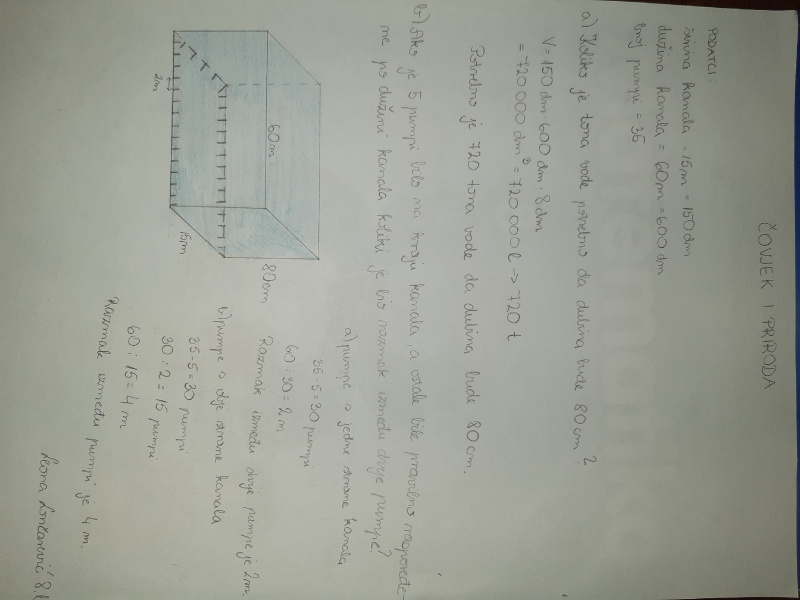 ČOVJEK I PRIRODA
PODATCI:
širina kanala = 15m = 150 dm
dužina kanala = 60m = 600 dm
broj pumpi = 35
a) Koliko je tona vode potrebno da dubina bude 80cm?
V = 150 dm · 600 dm · 8 dm
= 720 000 dm³ = 720 000 l → 720 t
Potrebno je 720 tona vode da dubina bude 80 cm.
b) Ako je 5 pumpi bilo na kraju kanala, a ostale bile pravilno raspoređe-
ne po dužini kanala koliki je bio razmak između dvije pumpe?
a) pumpe s jedne strane kanala
35-5=30 pumpi
60 : 30 = 2 m
Razmak između dvije pumpe je 2m.
b) pumpe s dvije strane kanala
35-5=30 pumpi
30 : 2 = 15 pumpi
60 : 15 = 4 m
Razmak između pumpi je 4 m.
60m
2m
15m
80cm
Leona Lončarević 8.